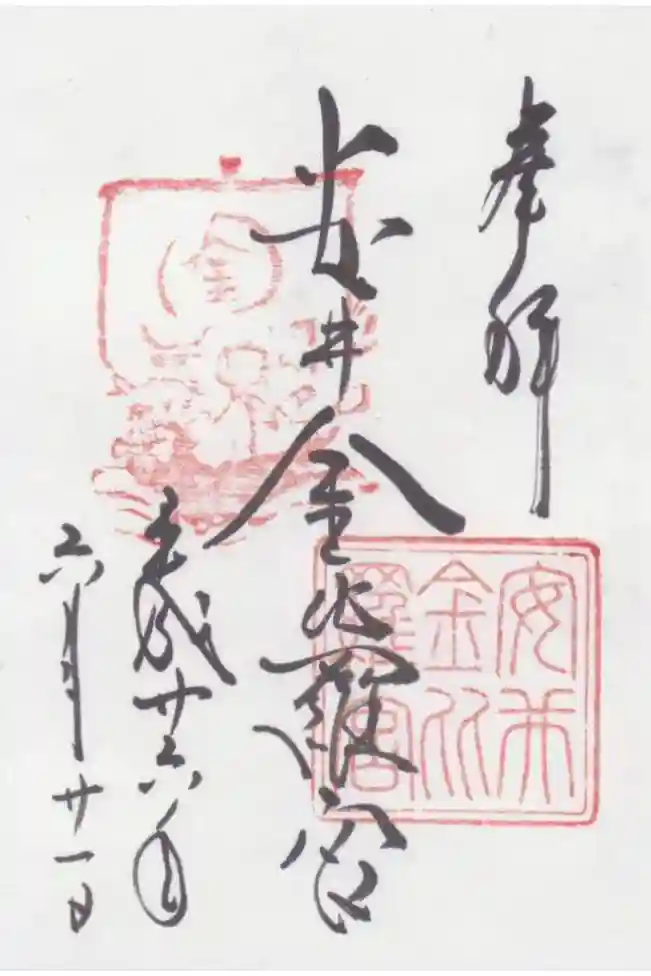 奉拝
安井金比羅宮
平成廿六年
六月廿一日
安井
金比
羅宮
金